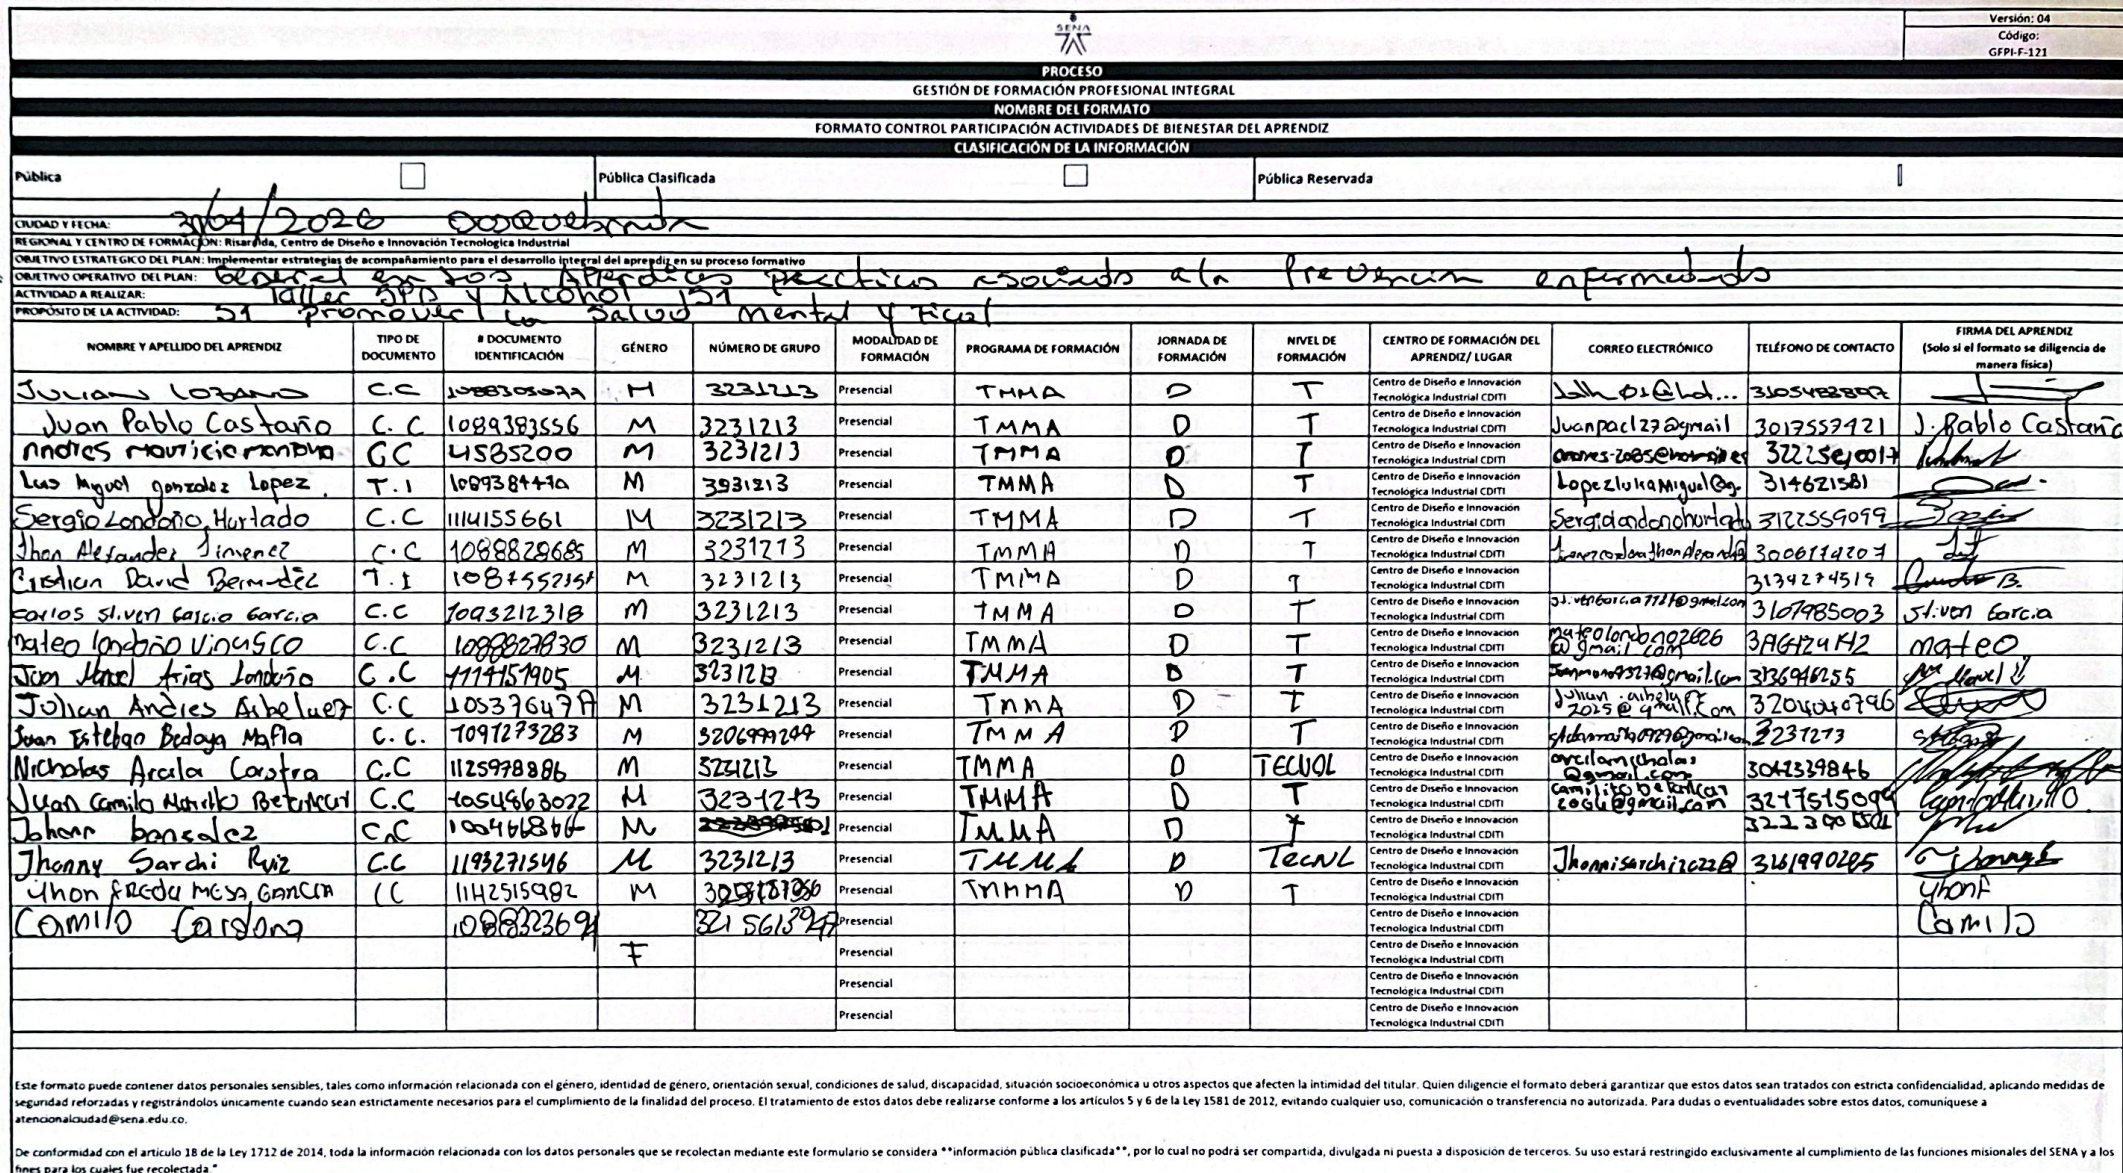 SENA
Versión: 04
Código:
GFPI-F-121
PROCESO
GESTIÓN DE FORMACIÓN PROFESIONAL INTEGRAL
NOMBRE DEL FORMATO
FORMATO CONTROL PARTICIPACIÓN ACTIVIDADES DE BIENESTAR DEL APRENDIZ
CLASIFICACIÓN DE LA INFORMACIÓN
Pública Pública Clasificada Pública Reservada
CIUDAD Y FECHA: /2026 Dosquebrada
REGIONAL Y CENTRO DE FORMACIÓN: Risaralda, Centro de Diseño e Innovación Tecnologica Industrial
OBJETIVO ESTRATEGICO DEL PLAN: Implementar estrategias de acompañamiento para el desarrollo integral del aprendiz en su proceso formativo
OBJETIVO OPERATIVO DEL PLAN: en los a la Prevencion
ACTIVIDAD A REALIZAR: Taller SPA y Alcohol 151
PROPÓSITO DE LA ACTIVIDAD: 51 promover la salud mental y
NOMBRE Y APELLIDO DEL APRENDIZ TIPO DE DOCUMENTO # DOCUMENTO IDENTIFICACIÓN GÉNERO NÚMERO DE GRUPO MODALIDAD DE FORMACIÓN PROGRAMA DE FORMACIÓN JORNADA DE FORMACIÓN NIVEL DE FORMACIÓN CENTRO DE FORMACIÓN DEL APRENDIZ/ LUGAR CORREO ELECTRÓNICO TELÉFONO DE CONTACTO FIRMA DEL APRENDIZ (Solo si el formato se diligencia de manera física)
JULIAN LOZANO C.C M 3231213 Presencial TMMA D T Centro de Diseño e Innovación Tecnológica Industrial CDITI
Juan Pablo Castaño C.C 1089383556 M 3231213 Presencial TMMA D T Centro de Diseño e Innovación Tecnológica Industrial CDITI Juanpacl27@gmail 3017557421 J. Pablo Castaño
Andres Mauricio CC 4585200 M 3231213 Presencial TMMA D T Centro de Diseño e Innovación Tecnológica Industrial CDITI
Luis Miguel gonzalez Lopez T.I M 3931213 Presencial TMMA D T Centro de Diseño e Innovación Tecnológica Industrial CDITI 314621581
Sergio Londoño Hurtado C.C 1114155661 M 3231213 Presencial TMMA D T Centro de Diseño e Innovación Tecnológica Industrial CDITI Sergiolondonohurtado 3122559099
Jhon Alexander Jimenez C.C 1088828685 M 3231213 Presencial TMMA D T Centro de Diseño e Innovación Tecnológica Industrial CDITI 3006114207
Cristian David Bermudez T.I M 3231213 Presencial TMMA D T Centro de Diseño e Innovación Tecnológica Industrial CDITI 3134274519
carlos stiven Garcia Garcia C.C 1093212318 M 3231213 Presencial TMMA D T Centro de Diseño e Innovación Tecnológica Industrial CDITI 3107985003 stiven Garcia
mateo londoño Vinasco C.C 1088827830 M 3231213 Presencial TMMA D T Centro de Diseño e Innovación Tecnológica Industrial CDITI mateolondono2626 @gmail com mateo
Juan Manuel Arias Londoño C.C M 3231213 Presencial TMMA D T Centro de Diseño e Innovación Tecnológica Industrial CDITI 3136946255
Julian Andres Arbelaez C.C M 3231213 Presencial TMMA D T Centro de Diseño e Innovación Tecnológica Industrial CDITI
Juan Esteban Bedoya Mafla C.C. 1091273283 M Presencial TMMA D T Centro de Diseño e Innovación Tecnológica Industrial CDITI
Nicholas Arcila Castro C.C 1125978886 M 3231213 Presencial TMMA D TECNOL Centro de Diseño e Innovación Tecnológica Industrial CDITI arcilanicholas @gmail.com 3042339846
Juan Camilo Murillo Betancur C.C 1054863022 M 3231213 Presencial TMMA D T Centro de Diseño e Innovación Tecnológica Industrial CDITI camilitobetancur 2006@gmail.com 3217515099
Johann C.C M Presencial TMMA D Centro de Diseño e Innovación Tecnológica Industrial CDITI
Jhonny Sarchi Ruiz C.C 1193271546 M 3231213 Presencial TMMA D Tecnl Centro de Diseño e Innovación Tecnológica Industrial CDITI Jhonnisarchi2022@
Yhon FREDY MESA GARCIA CC 1142515982 M Presencial TMMMA D T Centro de Diseño e Innovación Tecnológica Industrial CDITI YhonF
Camilo Cardona Presencial Centro de Diseño e Innovación Tecnológica Industrial CDITI Camilo
F Presencial Centro de Diseño e Innovación Tecnológica Industrial CDITI
Presencial Centro de Diseño e Innovación Tecnológica Industrial CDITI
Presencial Centro de Diseño e Innovación Tecnológica Industrial CDITI
Este formato puede contener datos personales sensibles, tales como información relacionada con el género, identidad de género, orientación sexual, condiciones de salud, discapacidad, situación socioeconómica u otros aspectos que afecten la intimidad del titular. Quien diligencie el formato deberá garantizar que estos datos sean tratados con estricta confidencialidad, aplicando medidas de
seguridad reforzadas y registrándolos únicamente cuando sean estrictamente necesarios para el cumplimiento de la finalidad del proceso. El tratamiento de estos datos debe realizarse conforme a los artículos 5 y 6 de la Ley 1581 de 2012, evitando cualquier uso, comunicación o transferencia no autorizada. Para dudas o eventualidades sobre estos datos, comuníquese a
atencionalciudad@sena.edu.co.
De conformidad con el artículo 18 de la Ley 1712 de 2014, toda la información relacionada con los datos personales que se recolectan mediante este formulario se considera **información pública clasificada**, por lo cual no podrá ser compartida, divulgada ni puesta a disposición de terceros. Su uso estará restringido exclusivamente al cumplimiento de las funciones misionales del SENA y a los
fines para los cuales fue recolectada."